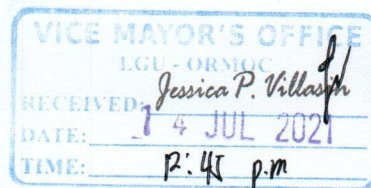 VICE MAYOR'S OFFICE
LGU - ORMOC
RECEIVED: Jessica P. Villasin
DATE: 14 JUL 2021
TIME: 12:45 p.m